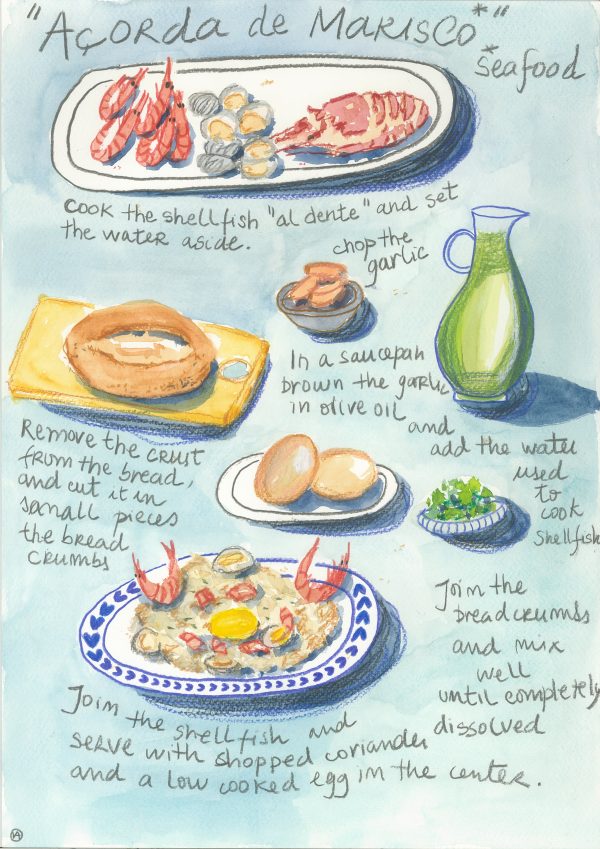 "AÇORDA de MARISCO*"
*seafood
COOK the shellfish "al dente" and set
the water aside.
chop the
garlic
In a saucepan
brown the garlic
in olive oil
and
add the water
used
to
cook
shellfish
Remove the crust
from the bread,
and cut it in
small pieces
the bread
crumbs
Join the
breadcrumbs
and mix
well
until completely
dissolved
Join the shellfish and
serve with shopped coriander
and a low cooked egg in the center.